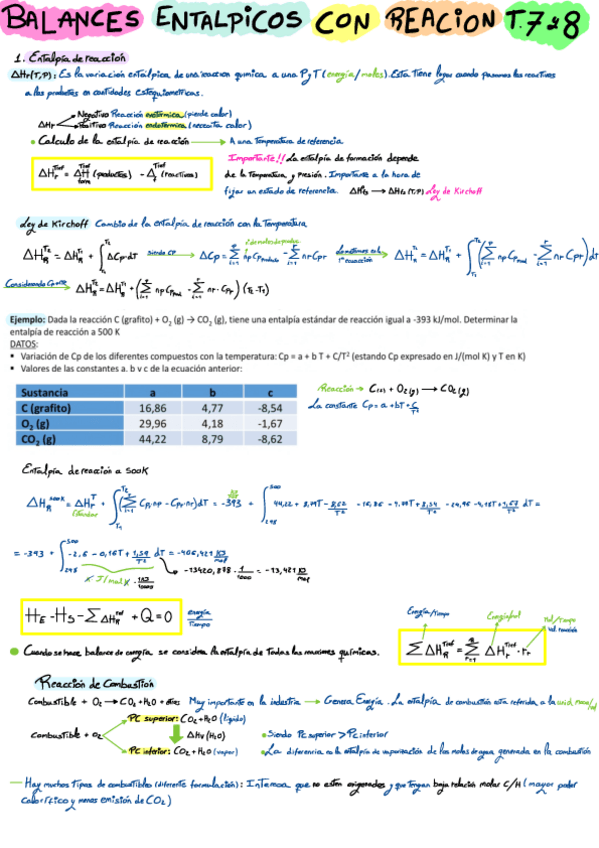 BALANCES ENTALPICOS CON REACION T.7 y 8
1. Entalpía de reacción
ΔHr(T,P): Es la variación entálpica de una reacción química a una P y T (energía/moles). Esta tiene lugar cuando pasamos los reactivos
a los productos en cantidades estequiometricas.
ΔHr Negativo Reacción exotérmica (pierde calor)
Positivo Reacción endotérmica (necesita calor)
• Calculo de la entalpía de reacción → A una Temperatura de referencia.
Importante!! La entalpía de formación depende
ΔHr^Tref = ΔH form^Tref (productos) - Δf^Tref (reactivos)
de la Temperatura y Presión. Importante a la hora de
fijar un estado de referencia. → Ley de Kirchoff
Ley de Kirchoff Cambio de la entalpía de reacción con la Temperatura
ΔH_R^T2 = ΔH_R^T1 + ∫_T1^T2 ΔCp·dT siendo CP ΔCp = Σ np Cp producto - Σ nr Cpr ΔH_R^T2 = ΔH_R^T1 + ∫_T1^T2 (Σ np Cp prod - Σ nr Cpr) dt
Considerando Cp≠f(T) ΔH_R^T2 = ΔH_R^T1 + (Σ np Cp prod - Σ nr·Cpr) (T2-T1)
Ejemplo: Dada la reacción C (grafito) + O2 (g) → CO2 (g), tiene una entalpía estándar de reacción igual a -393 kJ/mol. Determinar la
entalpía de reacción a 500 K
DATOS:
▪ Variación de Cp de los diferentes compuestos con la temperatura: Cp = a + b T + C/T² (estando Cp expresado en J/(mol K) y T en K)
▪ Valores de las constantes a. b v c de la ecuación anterior:
Sustancia a b c
C (grafito) 16,86 4,77 -8,54
O2 (g) 29,96 4,18 -1,67
CO2 (g) 44,22 8,79 -8,62
Reacción → C(s) + O2(g) → CO2(g)
La constante Cp = a + bT + C/T²
Entalpía de reacción a 500K
ΔH_R^500K = ΔHr^T estandar + ∫_T1^T2 (Σ Cp·np - Cpr·nr) dT = -393 + ∫_298^500 44,22 + 8,79T - 8,62/T² - 16,86 - 4,77T + 8,54/T² - 29,96 - 4,18T + 1,67/T² dT =
= -393 + ∫_298^500 -2.6 - 0,16T + 1,59/T² dT = -406,421 KJ/mol
J/mol · 1KJ/1000 -13420,878 · 1/1000 = -13,421 KJ/mol
HE - HS - ΣΔH_R^Tref + Q = 0 energía/Tiempo
Energía/tiempo Energía/mol mol/tiempo
Vel. reacción
ΣΔH_R^Tref = Σ ΔHr^Tref · rr
• Cuando se hace balance de energía se considera la entalpía de todas las reacciones químicas.
Reacción de Combustión
Combustible + O2 → CO2 + H2O + otros Muy importante en la industria → Genera Energía. La entalpía de combustión esta referida a la
PC superior: CO2 + H2O (líquido)
Combustible + O2 ΔHv (H2O) • Siendo PC superior > PC inferior
PC inferior: CO2 + H2O (vapor) • La diferencia es la entalpía de vaporización de las moles de agua generada en la combustión
— Hay muchos tipos de combustibles (diferente formulación): Interesa que no esten oxigenados y que tengan baja relación molar C/H (mayor poder
calorífico y menos emisión de CO2)